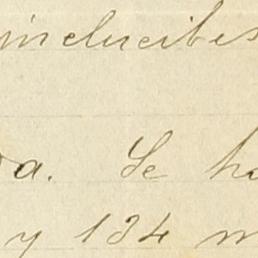 inelucibes
a. Se ha
y 134 m